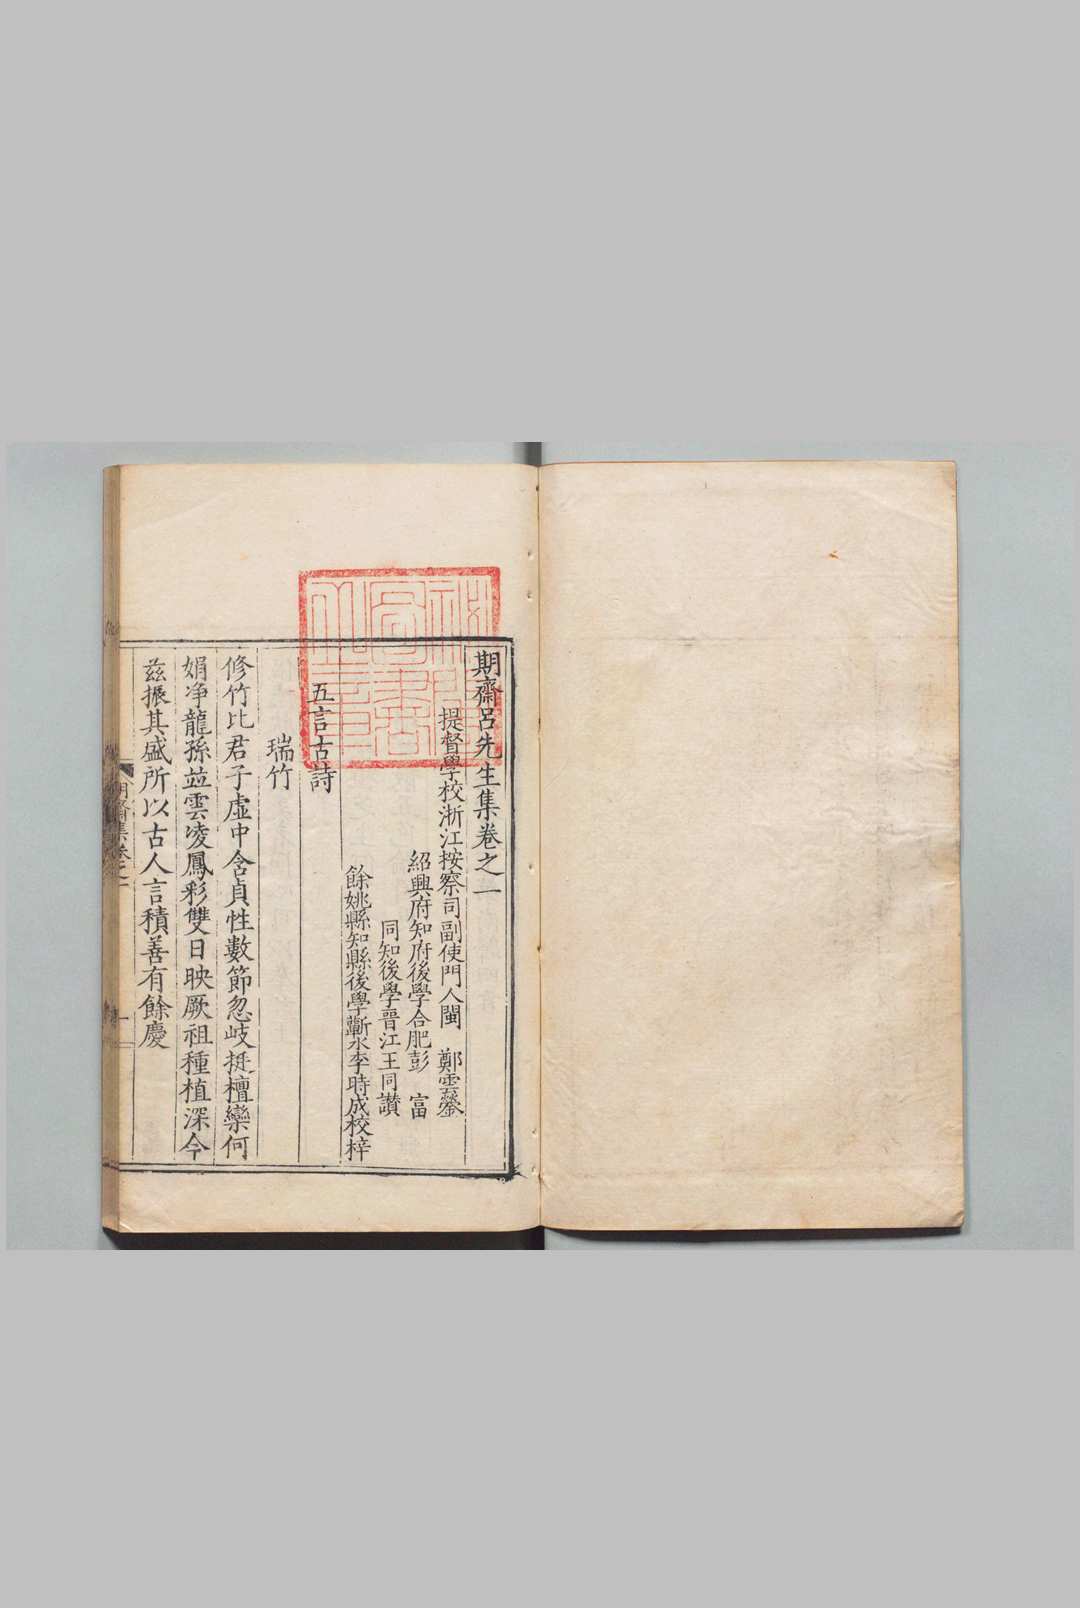 期齋呂先生集卷之一
提督學校浙江按察司副使門人閩　鄭雲鎣
紹興府知府後學合肥彭　富
同知後學晉江王同讃
餘姚縣知縣後學蘄水李時成校梓
五言古詩
瑞竹
修竹比君子虛中含貞性數節忽岐挺檀欒何
娟净龍孫並雲凌鳳彩雙日映厥祖種植深今
茲振其盛所以古人言積善有餘慶
期齋集卷之一
一